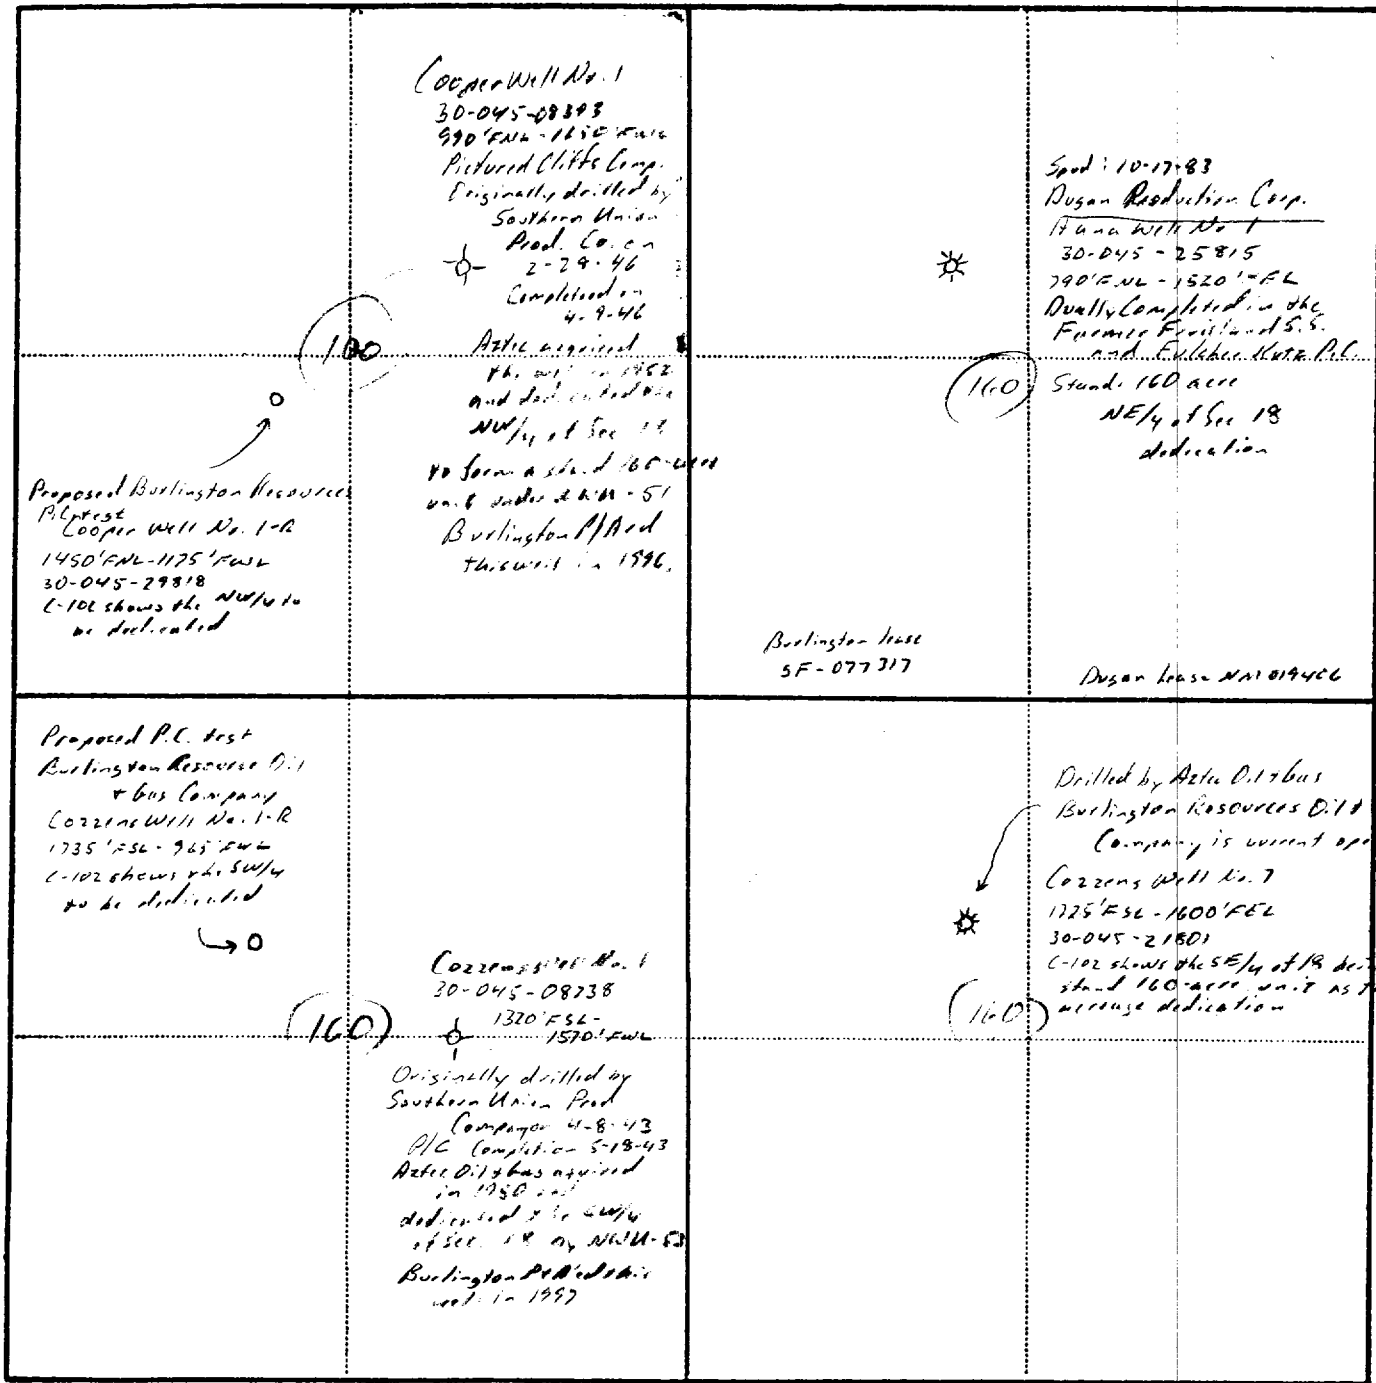 Cooper Well No. 1
30-045-08393
990'FNL-1650'FWL
Pictured Cliffs Comp.
Originally drilled by
Southern Union
Prod. Co. on
2-28-46
Completed on
4-9-46
Aztec acquired
the well in 1952
and dedicated the
NW/4 of Sec 18
to form a stand 160-acre
unit under
Burlington P/A'ed
this well in 1996.
160
Proposed Burlington Resources
P.C. test
Cooper Well No. 1-R
1450'FNL-1175'FWL
30-045-29818
C-102 shows the NW/4 to
be dedicated
Spud: 10-17-83
Dugan Production Corp.
Anna Well No 1
30-045-25815
790'FNL-1520'FEL
Dually Completed in the
Farmer Fruitland S.S.
and Fulcher Kutz P.C.
160
Stand. 160 acre
NE/4 of Sec 18
dedication
Burlington lease
SF-077317
Dugan lease
Proposed P.C. test
Burlington Resource Oil
+ Gas Company
Cozzens Well No. 1-R
1735'FSL-965'FWL
C-102 shows the SW/4
to be dedicated
Cozzens Well No. 1
30-045-08238
1320'FSL-
1570'FWL
160
Originally drilled by
Southern Union Prod
Company 4-8-43
P/C Completion 5-18-43
Aztec Oil + Gas acquired
in 1950 and
dedicated the SW/4
of Sec. 18 by NWU-53
Burlington P+A'ed this
well in 1997
Drilled by Aztec Oil + Gas
Burlington Resources Oil +
Company is current ope
Cozzens Well No. 7
1725'FSL-1600'FEL
30-045-21801
C-102 shows the SE/4 of 18 bei
stand 160-acre unit as t
acreage dedication
160